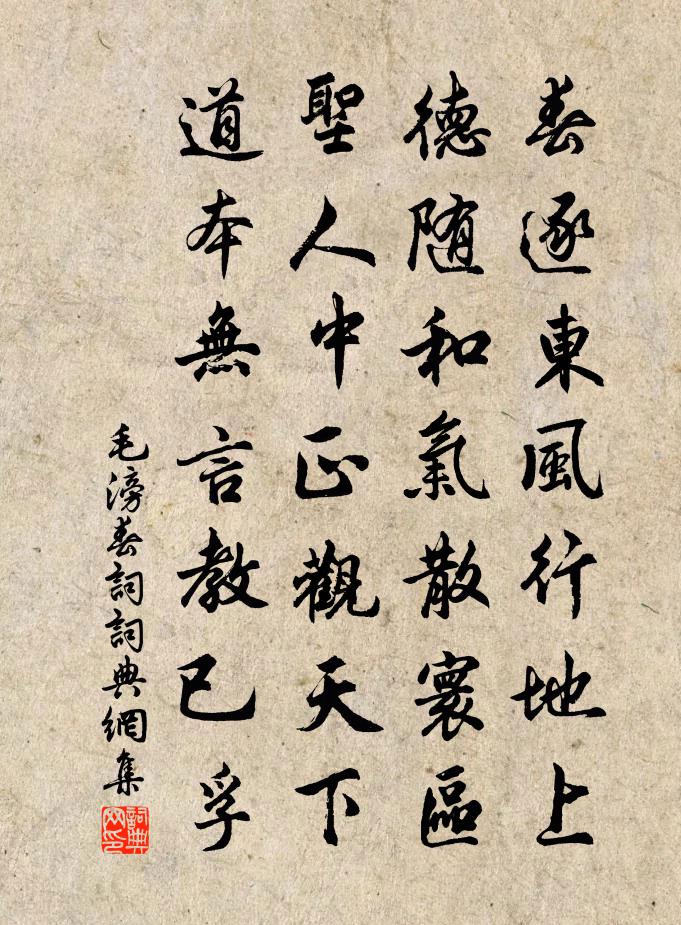 春逐東風行地上
德随和氣散寰區
聖人中正觀天下
道本無言教已孚
毛滂春詞詞典網集
詞典網印